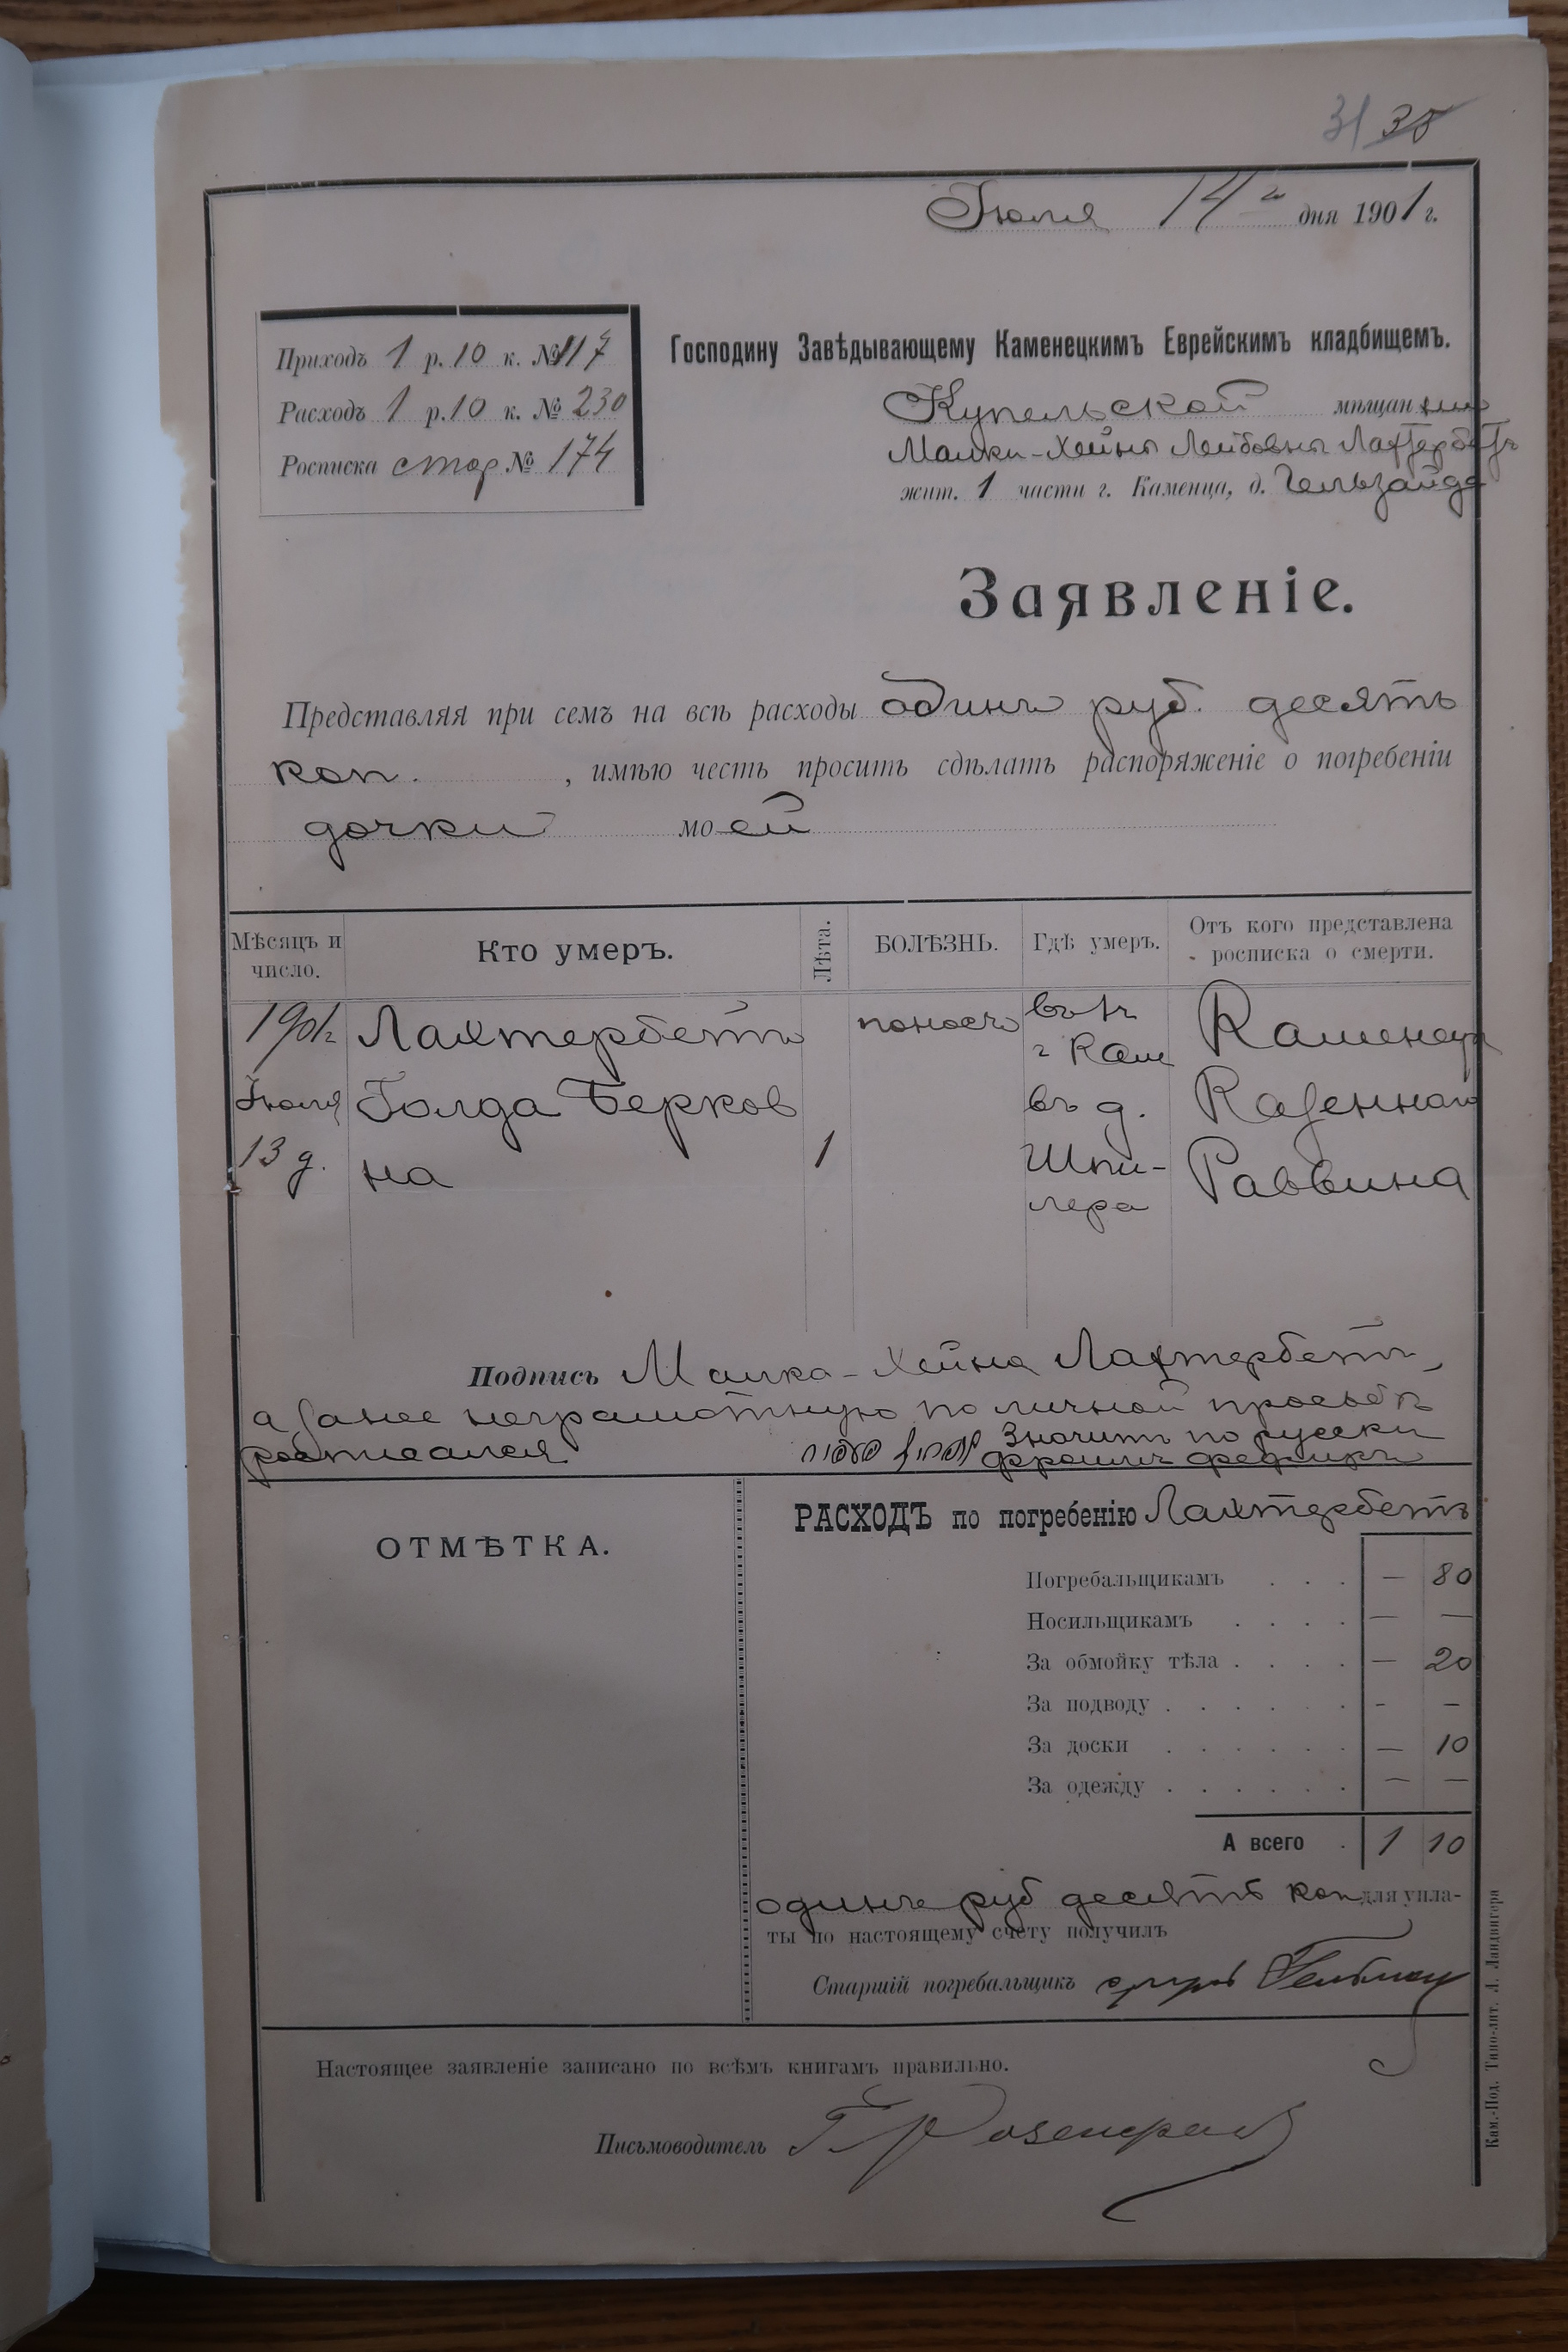 31 38
Іюля 14 го дня 1901 г.
Приходъ 1 р. 10 к. № 117
Расходъ 1 р. 10 к. № 230
Росписка стар № 174
Господину Завѣдывающему Каменецкимъ Еврейскимъ кладбищемъ.
Купельской мѣщан
Малки-Хейны Лейбовны Лахтербетъ
жит. 1 части г. Каменца, д. Гельзайда
Заявленіе.
Представляя при семъ на всѣ расходы одинъ руб. десять
коп. , имѣю честь просить сдѣлать распоряженіе о погребеніи
дочки моей
Мѣсяцъ и число. Кто умеръ. Лѣта. БОЛѢЗНЬ. Гдѣ умеръ. Отъ кого представлена росписка о смерти.
1901 г. Лахтербетъ поносъ въ г. Каменец
г Кам
Іюля Голда Берков въ д. Казеннаго
13 д. на 1 Шпи- Раввина
лера
Подпись Малка-Хейна Лахтербетъ,
а за нее неграмотную по личной просьбѣ
росписался Значитъ по русски
РАСХОДЪ по погребенію Лахтербетъ
ОТМѢТКА.
Погребальщикамъ . . . — 80
Носильщикамъ . . . . — —
За обмойку тѣла . . . . — 20
За подводу . . . . . . - —
За доски . . . . . . — 10
За одежду . . . . . . — —
А всего . 1 10
одинъ руб десять коп для упла-
ты по настоящему счету получилъ
Старшій погребальщикъ
Настоящее заявленіе записано по всѣмъ книгамъ правильно.
Письмоводитель
Кам.-Под. Типо-лит. Л. Ландвигера